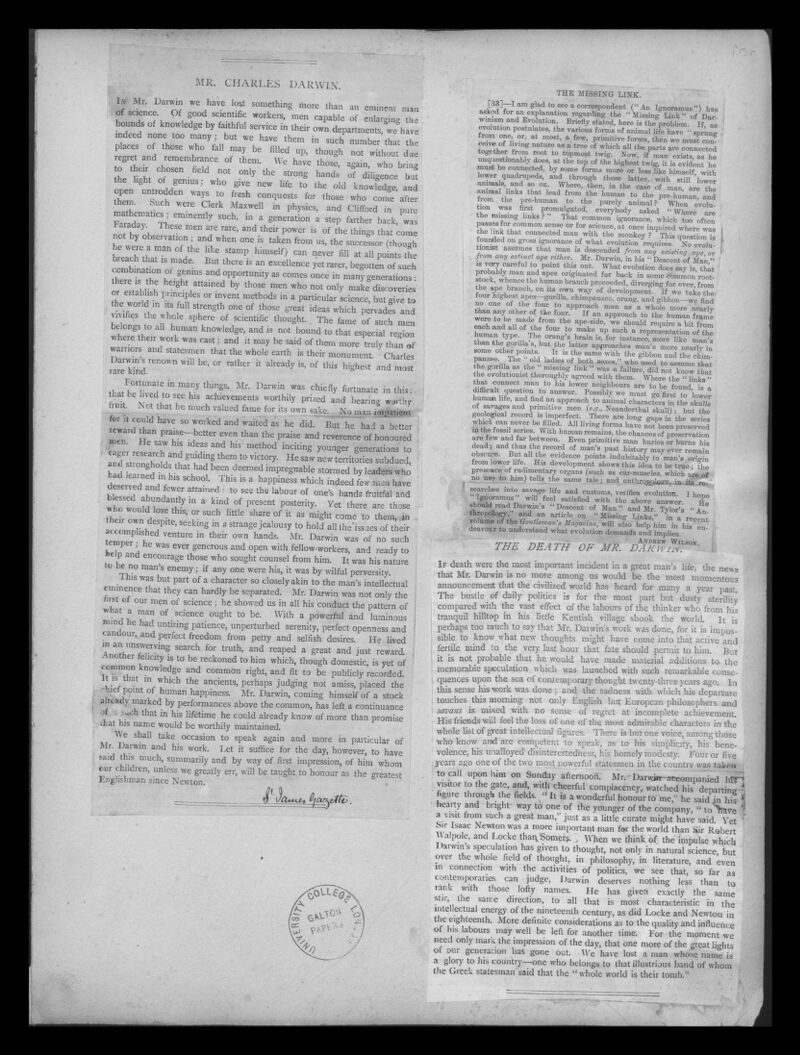 MR. CHARLES DARWIN.
IN Mr. Darwin we have lost something more than an eminent man
of science. Of good scientific workers, men capable of enlarging the
bounds of knowledge by faithful service in their own departments, we have
indeed none too many; but we have them in such number that the
places of those who fall may be filled up, though not without due
regret and remembrance of them. We have those, again, who bring
to their chosen field not only the strong hands of diligence but
the light of genius; who give new life to the old knowledge, and
open untrodden ways to fresh conquests for those who come after
them. Such were Clerk Maxwell in physics, and Clifford in pure
mathematics; eminently such, in a generation a step farther back, was
Faraday. These men are rare, and their power is of the things that come
not by observation; and when one is taken from us, the successor (though
he were a man of the like stamp himself) can never fill at all points the
breach that is made. But there is an excellence yet rarer, begotten of such
combination of genius and opportunity as comes once in many generations:
there is the height attained by those men who not only make discoveries
or establish principles or invent methods in a particular science, but give to
the world in its full strength one of those great ideas which pervades and
vivifies the whole sphere of scientific thought. The fame of such men
belongs to all human knowledge, and is not bound to that especial region
where their work was cast; and it may be said of them more truly than of
warriors and statesmen that the whole earth is their monument. Charles
Darwin's renown will be, or rather it already is, of this highest and most
rare kind.
Fortunate in many things, Mr. Darwin was chiefly fortunate in this:
that he lived to see his achievements worthily prized and bearing worthy
fruit. Not that he much valued fame for its own sake. No man impatient
for it could have so worked and waited as he did. But he had a better
reward than praise—better even than the praise and reverence of honoured
men. He saw his ideas and his method inciting younger generations to
eager research and guiding them to victory. He saw new territories subdued,
and strongholds that had been deemed impregnable stormed by leaders who
had learned in his school. This is a happiness which indeed few men have
deserved and fewer attained: to see the labour of one's hands fruitful and
blessed abundantly in a kind of present posterity. Yet there are those
who would lose this, or such little share of it as might come to them, in
their own despite, seeking in a strange jealousy to hold all the issues of their
accomplished venture in their own hands. Mr. Darwin was of no such
temper; he was ever generous and open with fellow-workers, and ready to
help and encourage those who sought counsel from him. It was his nature
to be no man's enemy; if any one were his, it was by wilful perversity.
This was but part of a character so closely akin to the man's intellectual
eminence that they can hardly be separated. Mr. Darwin was not only the
first of our men of science; he showed us in all his conduct the pattern of
what a man of science ought to be. With a powerful and luminous
mind he had untiring patience, unperturbed serenity, perfect openness and
candour, and perfect freedom from petty and selfish desires. He lived
in an unswerving search for truth, and reaped a great and just reward.
Another felicity is to be reckoned to him which, though domestic, is yet of
common knowledge and common right, and fit to be publicly recorded.
It is that in which the ancients, perhaps judging not amiss, placed the
chief point of human happiness. Mr. Darwin, coming himself of a stock
already marked by performances above the common, has left a continuance
of such that in his lifetime he could already know of more than promise
that his name would be worthily maintained.
We shall take occasion to speak again and more in particular of
Mr. Darwin and his work. Let it suffice for the day, however, to have
said this much, summarily and by way of first impression, of him whom
our children, unless we greatly err, will be taught to honour as the greatest
Englishman since Newton.
St James Gazette.
UNIVERSITY COLLEGE LONDON
GALTON
PAPERS
THE MISSING LINK.
[33]—I am glad to see a correspondent ("An Ignoramus") has
asked for an explanation regarding the "Missing Link" of Dar-
winism and Evolution. Briefly stated, here is the problem. If, as
evolution postulates, the various forms of animal life have "sprung
from one, or, at most, a few, primitive forms, then we must con-
ceive of living nature as a tree of which all the parts are connected
together from root to topmost twig. Now, if man exists, as he
unquestionably does, at the top of the highest twig, it is evident he
must be connected, by some forms more or less like himself, with
lower quadrupeds, and through these latter, with still lower
animals, and so on. Where, then, in the case of man, are the
animal links that lead from the human to the pre-human, and
from the pre-human to the purely animal? When evolu-
tion was first promulgated, everybody asked "Where are
the missing links?" That common ignorance, which too often
passes for common sense or for science, at once inquired where was
the link that connected man with the monkey? This question is
founded on gross ignorance of what evolution requires. No evolu-
tionist assumes that man is descended from any existing ape, or
from any extinct ape either. Mr. Darwin, in his "Descent of Man,"
is very careful to point this out. What evolution does say is, that
probably man and apes originated far back in some common root-
stock, whence the human branch proceeded, diverging for ever, from
the ape branch, on its own way of development. If we take the
four highest apes—gorilla, chimpanzee, orang, and gibbon—we find
no one of the four to approach man as a whole more nearly
than any other of the four. If an approach to the human frame
were to be made from the ape-side, we should require a bit from
each and all of the four to make up such a representation of the
human type. The orang's brain is, for instance, more like man's
than the gorilla's, but the latter approaches man's more nearly in
some other points. It is the same with the gibbon and the chim-
panzee. The "old ladies of both sexes," who used to assume that
the gorilla as the "missing link" was a failure, did not know that
the evolutionist thoroughly agreed with them. Where the "links"
that connect man to his lower neighbours are to be found, is a
difficult question to answer. Possibly we must go first to lower
human life, and find an approach to animal characters in the skulls
of savages and primitive men (e.g., Neanderthal skull); but the
geological record is imperfect. There are long gaps in the series
which can never be filled. All living forms have not been preserved
in the fossil series. With human remains, the chances of preservation
are few and far between. Even primitive man buries or burns his
dead; and thus the record of man's past history may ever remain
obscure. But all the evidence points indubitably to man's origin
from lower life. His development shows this idea to be true; the
presence of rudimentary organs (such as ear-muscles, which are of
no use to him) tells the same tale; and anthropology, in its re-
searches into savage life and customs, verifies evolution. I hope
"Ignoramus" will feel satisfied with the above answer. He
should read Darwin's "Descent of Man" and Mr. Tylor's "An-
thropology," and an article on "Missing Links," in a recent
volume of the Gentleman's Magazine, will also help him in his en-
deavour to understand what evolution demands and implies.
ANDREW WILSON.
THE DEATH OF MR. DARWIN.
IF death were the most important incident in a great man's life, the news
that Mr. Darwin is no more among us would be the most momentous
announcement that the civilized world has heard for many a year past.
The bustle of daily politics is for the most part but dusty sterility
compared with the vast effect of the labours of the thinker who from his
tranquil hilltop in his little Kentish village shook the world. It is
perhaps too much to say that Mr. Darwin's work was done, for it is impos-
sible to know what new thoughts might have come into that active and
fertile mind to the very last hour that fate should permit to him. But
it is not probable that he would have made material additions to the
memorable speculation which was launched with such remarkable conse-
quences upon the sea of contemporary thought twenty-three years ago. In
this sense his work was done; and the sadness with which his departure
touches this morning not only English but European philosophers and
savans is mixed with no sense of regret at incomplete achievement.
His friends will feel the loss of one of the most admirable characters in the
whole list of great intellectual figures. There is but one voice, among those
who know and are competent to speak, as to his simplicity, his bene-
volence, his unalloyed disinterestedness, his homely modesty. Four or five
years ago one of the two most powerful statesmen in the country was taken
to call upon him on Sunday afternoon. Mr. Darwin accompanied his
visitor to the gate, and, with cheerful complacency, watched his departing
figure through the fields. "It is a wonderful honour to me," he said in his
hearty and bright way to one of the younger of the company, "to have
a visit from such a great man," just as a little curate might have said. Yet
Sir Isaac Newton was a more important man for the world than Sir Robert
Walpole, and Locke than Somers. When we think of the impulse which
Darwin's speculation has given to thought, not only in natural science, but
over the whole field of thought, in philosophy, in literature, and even
in connection with the activities of politics, we see that, so far as
contemporaries can judge, Darwin deserves nothing less than to
rank with those lofty names. He has given exactly the same
stir, the same direction, to all that is most characteristic in the
intellectual energy of the nineteenth century, as did Locke and Newton in
the eighteenth. More definite considerations as to the quality and influence
of his labours may well be left for another time. For the moment we
need only mark the impression of the day, that one more of the great lights
of our generation has gone out. We have lost a man whose name is
a glory to his country—one who belongs to that illustrious band of whom
the Greek statesman said that the "whole world is their tomb."